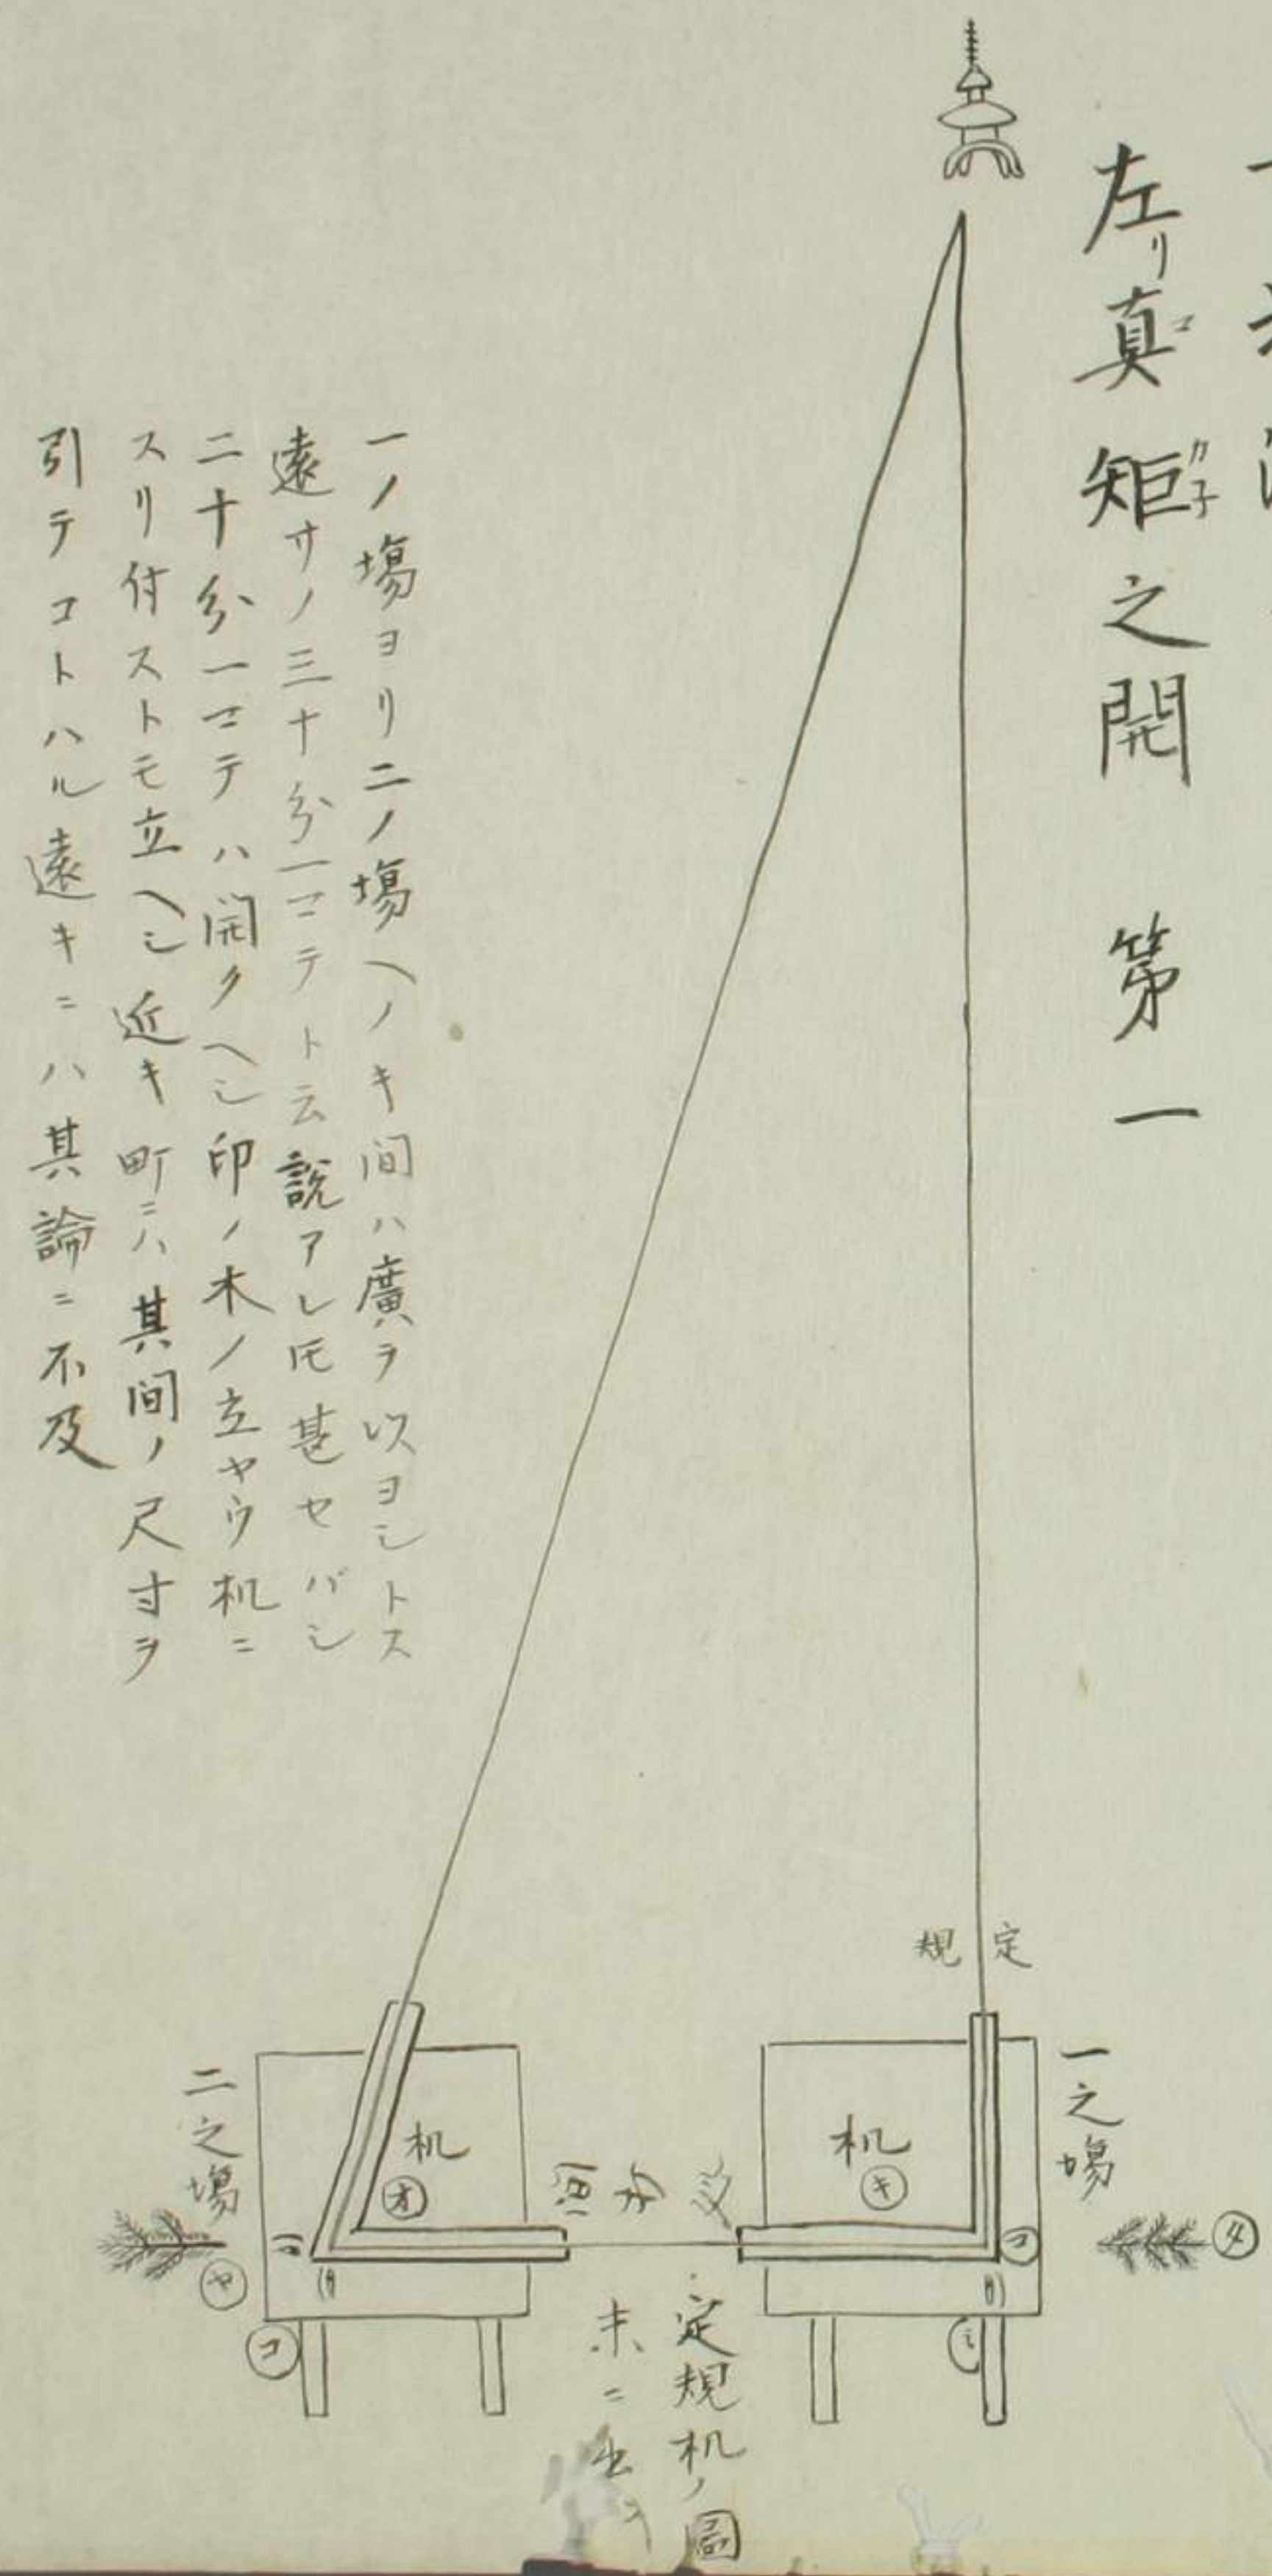 左リ真マ矩カ子之開　第一
一ノ塲ヨリ二ノ塲ヘノキ間ハ廣ヲ以ヨシトス
遠サノ三十分一マテト云説アレ𪜈甚セバシ
二十分一マテハ開クヘシ印ノ木ノ立ヤウ机ニ
スリ付ストモ立ヘシ近キ町ニハ其間ノ尺寸ヲ
引テコトハル遠キニハ其論ニ不及
定規
一之塲
机
キ
タ
二之塲
机
オ
ヤ
コ
間
定規机ノ圖
末ニ出ス